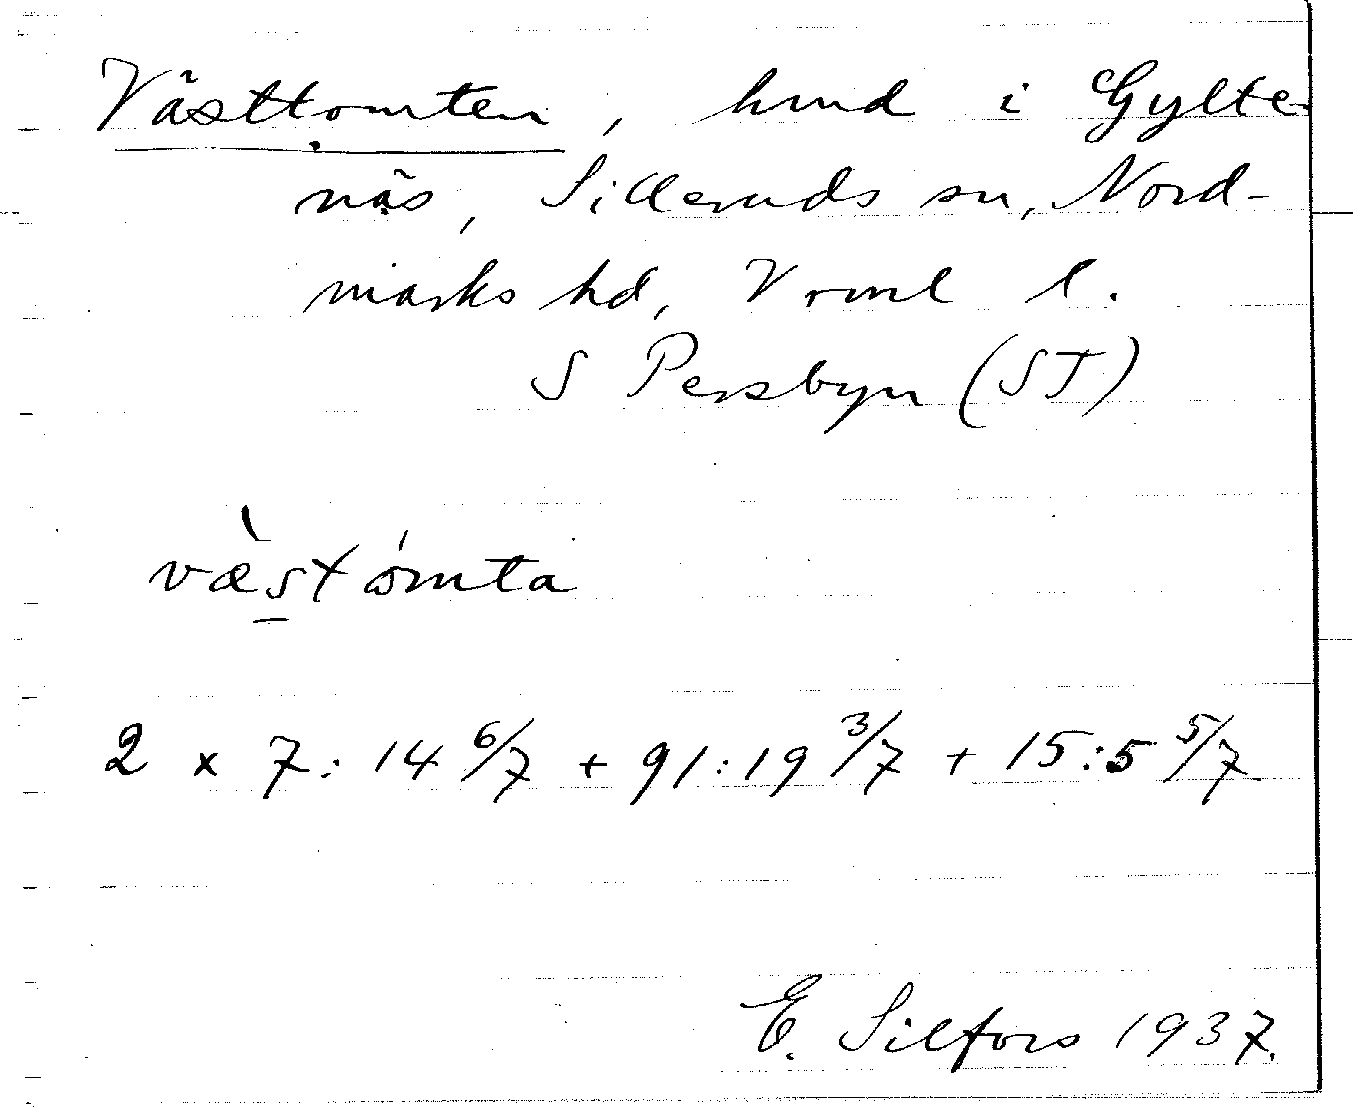 Västtomten, hmd i Gylte-
näs, Silleruds sn, Nord-
marks hd, Vrml l.
S Persbyn (ST)
væ̀stómta
2 x 7:14 6/7 + 91:19 3/7 + 15:5 5/7
E. Silfors 1937.